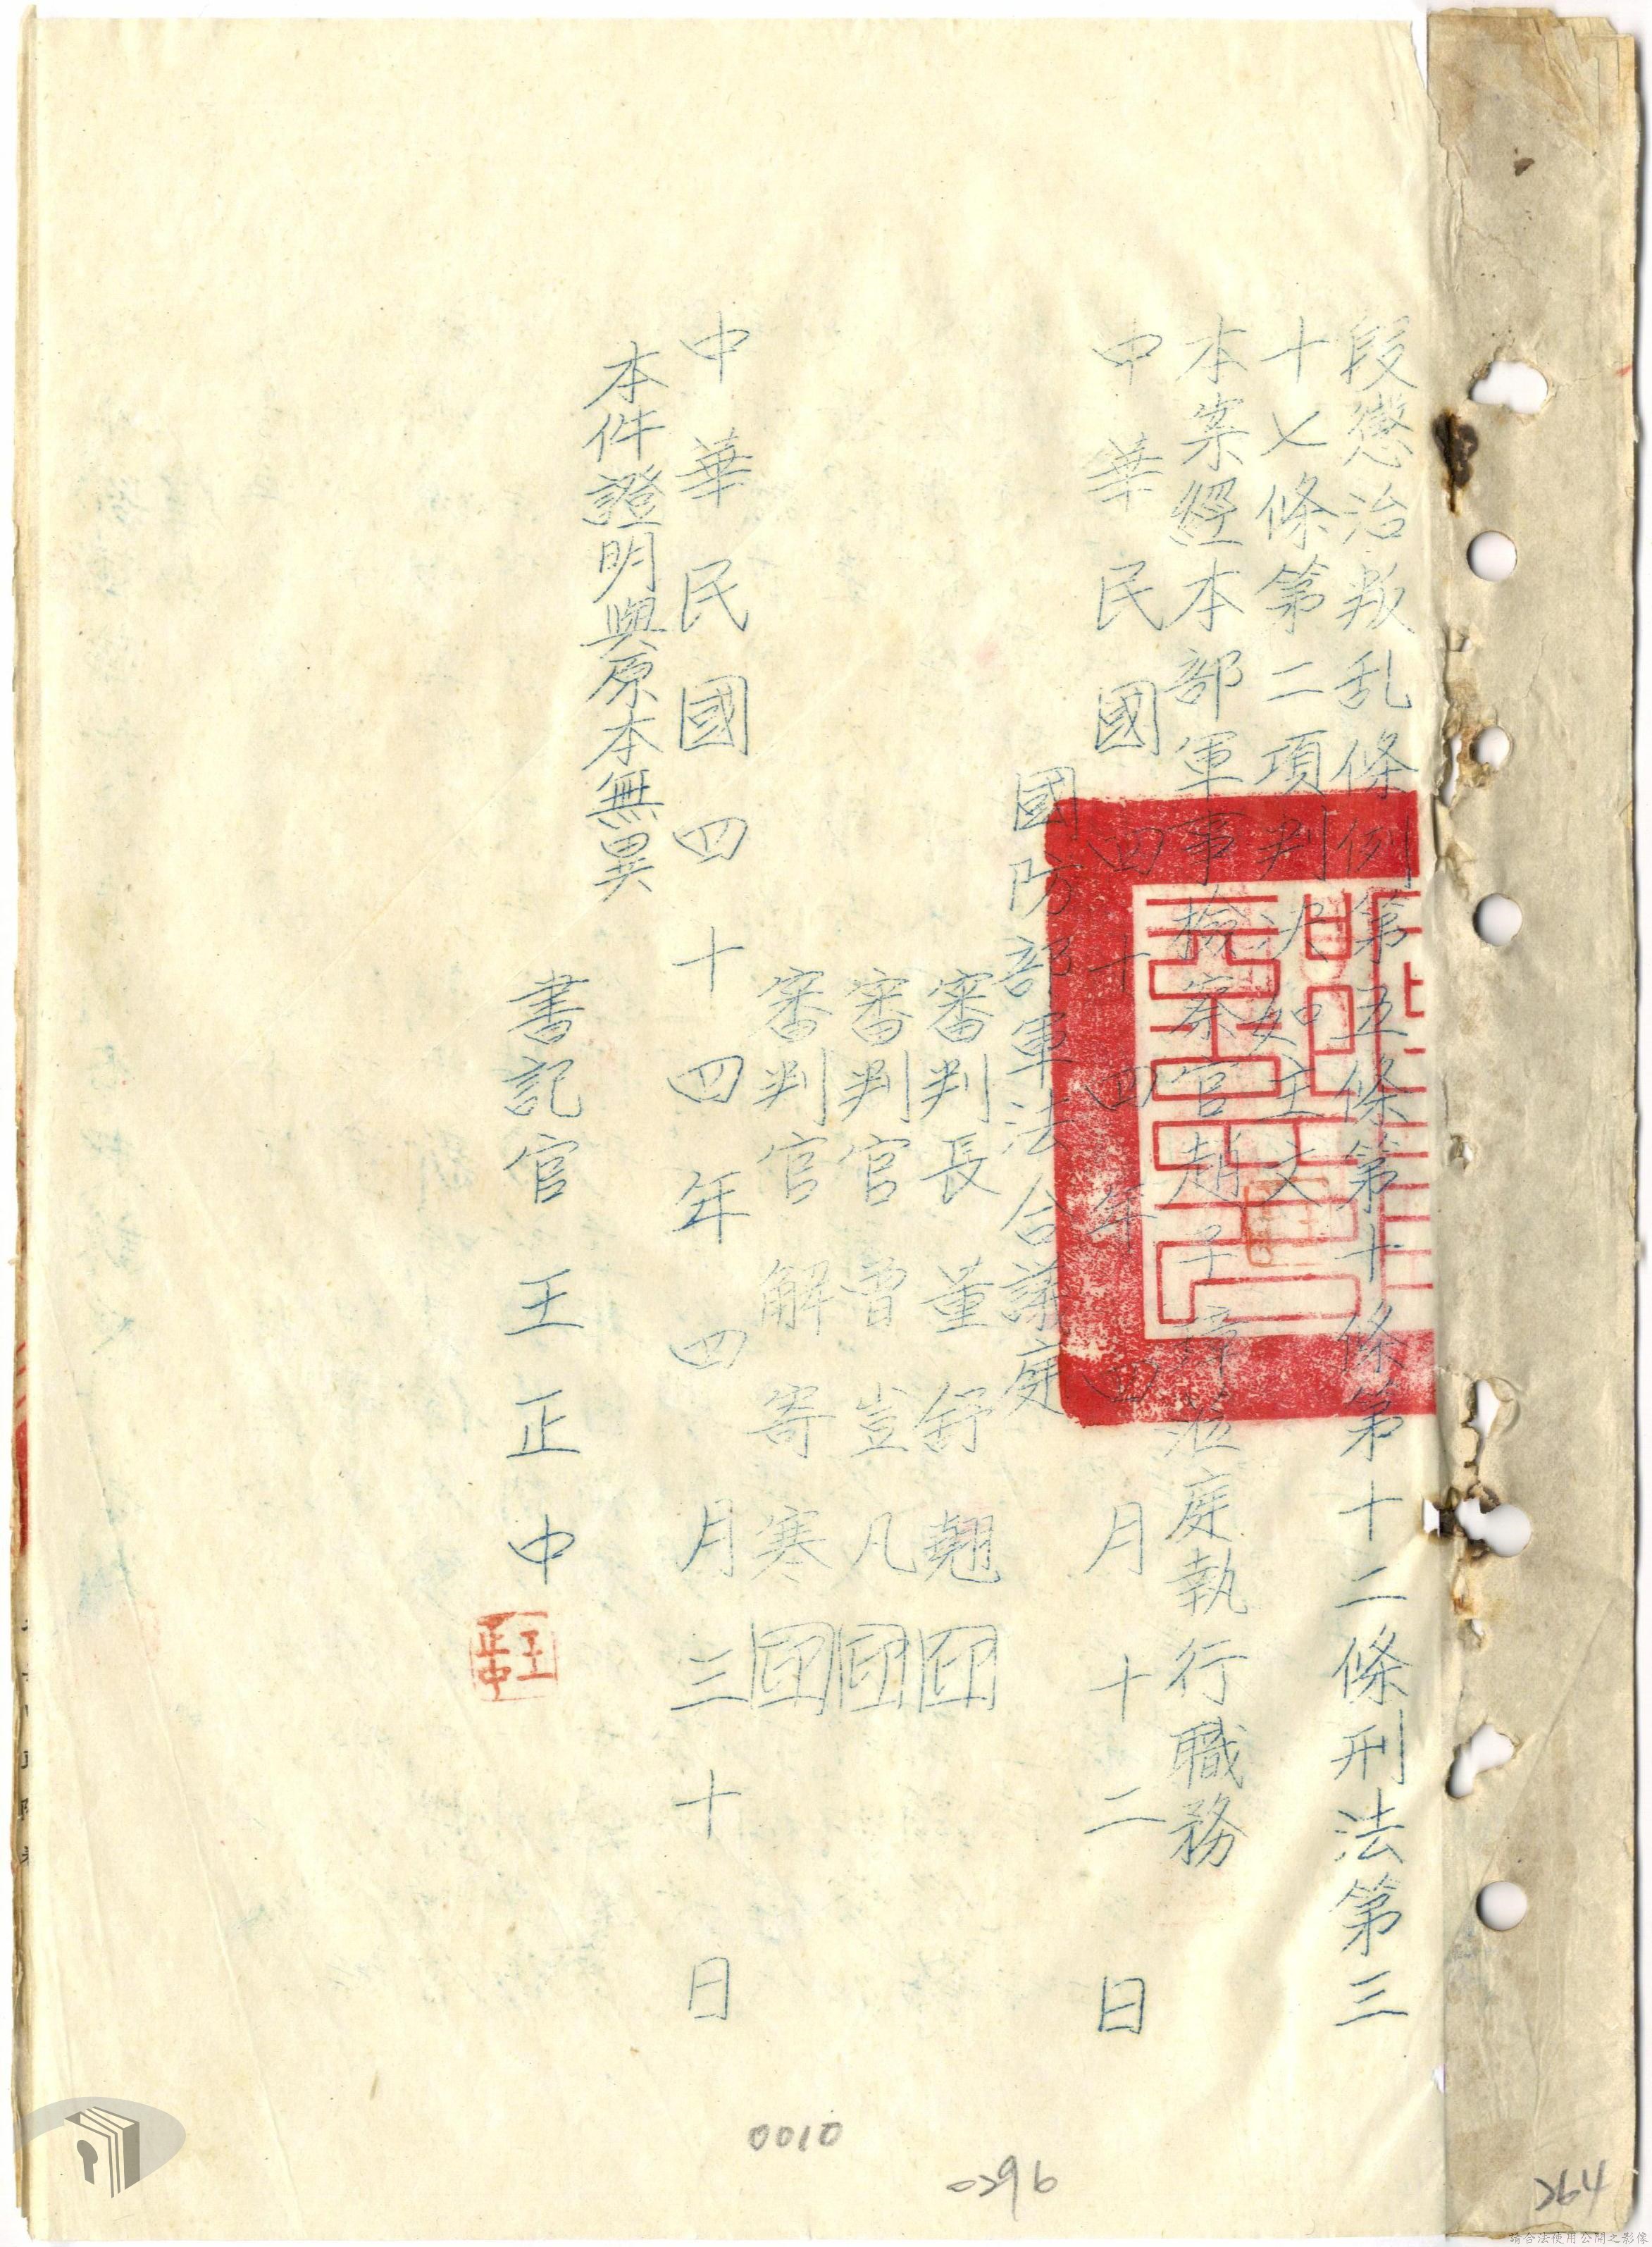 段懲治叛乱條例第五條第十條第十二條刑法第三
十七條第二項判決如主文
本案經本部軍事檢察官趙子璋蒞庭執行職務
中華民國四十四年四月十二日
國防部軍法合議庭
審判長董舒翹印
審判官曾豈凡印
審判官解寄寒印
中華民國四十四年四月三十日
本件證明與原本無異
書記官王正中
王正中
0010
0296
264
請合法使用公開之影像